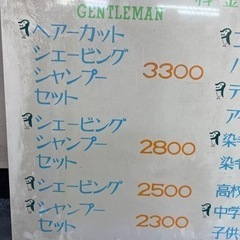 GENTLEMAN
ヘアーカット
シェービング
シャンプー 3300
セット
シェービング
シャンプー 2800
セット
シェービング 2500
シャンプー
セット 2300
料金
染
染毛
高校
中学
子供